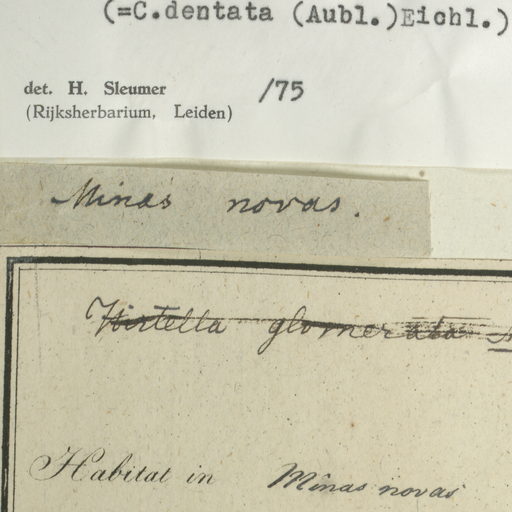 (=C.dentata (Aubl.)Eichl.)
det. H. Sleumer /75
(Rijksherbarium, Leiden)
Minas novas.
Hirtella glomerata
Habitat in Minas novas